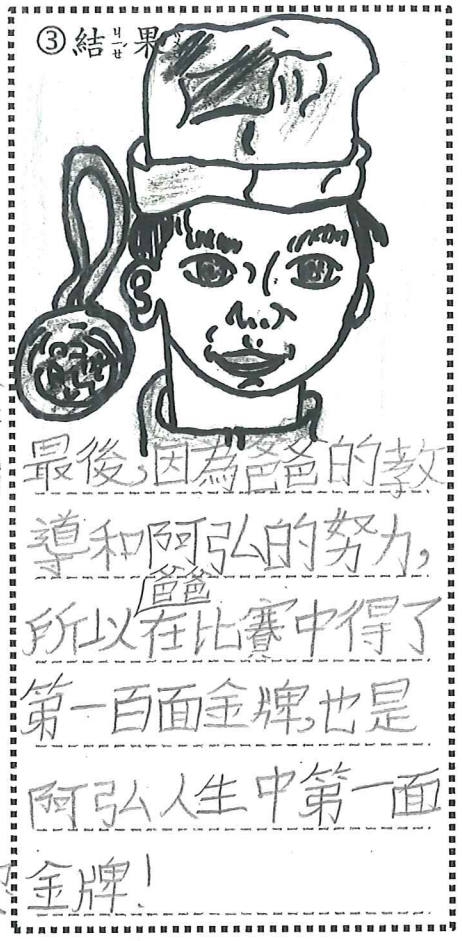 ③結果
ㄐㄧㄝˊ
最後,因為爸爸的教
導和阿弘的努力,
爸爸
所以在比賽中得了
第一百面金牌,也是
阿弘人生中第一面
金牌!